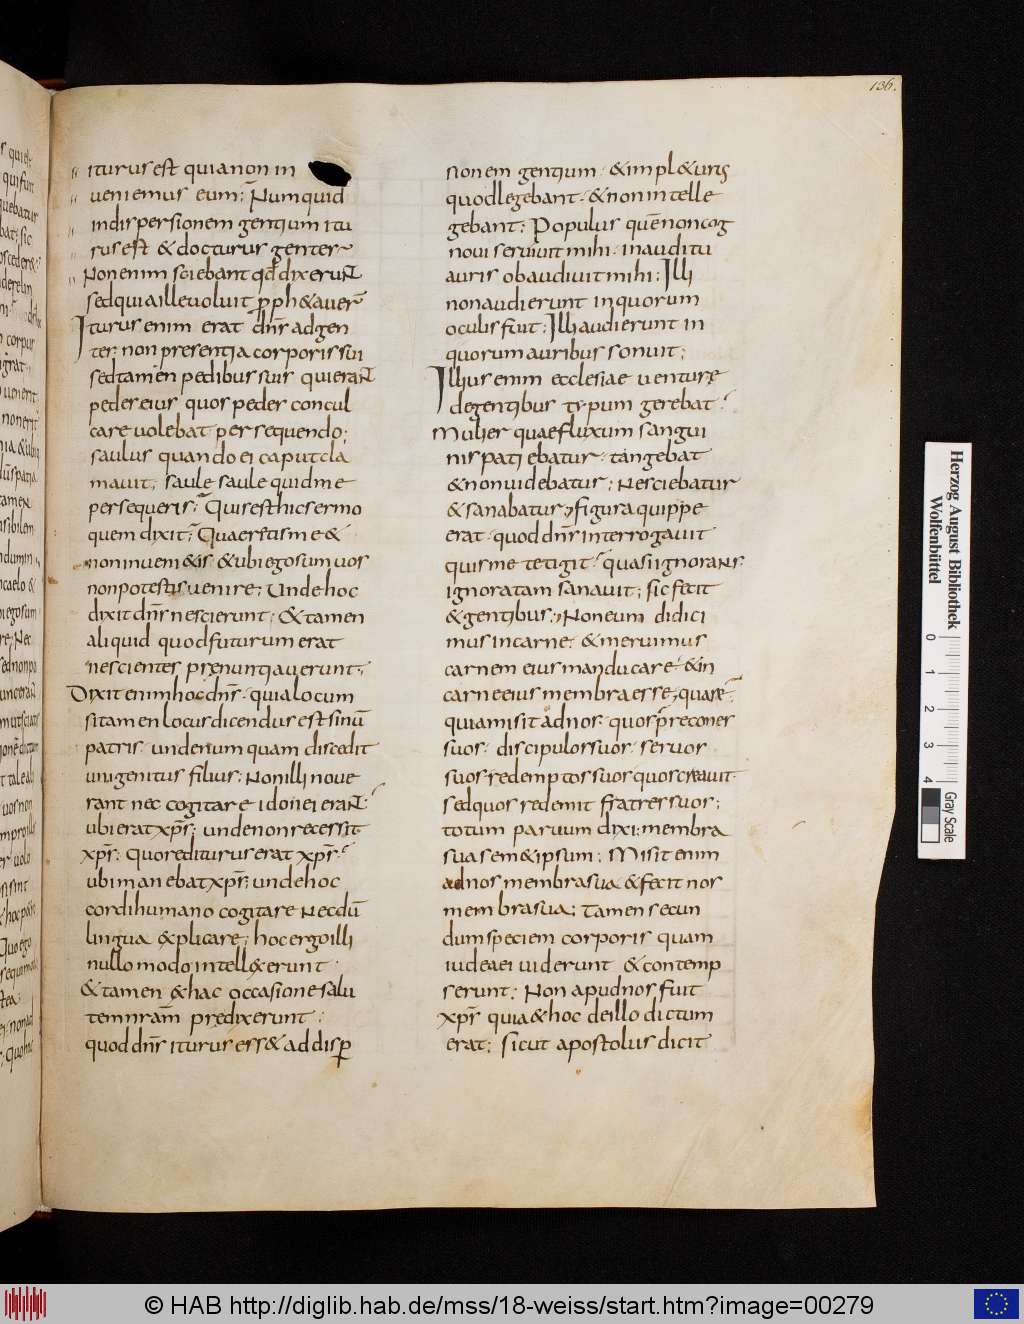 136.
iturus est quia non in
ueniemus eum; Numquid
in dispersionem gentium itu
rus est & docturus gentes
Non enim sciebant qđ dixerunt
sed quia ille uoluit ꝓph&auer̄
Iturus enim erat dn̄s ad gen
tes non presentia corporis sui
sed tamen pedibus suis qui erant
pedes eius quos pedes concul
care uolebat persequendo;
saulus quando ei caput cla
mauit; saule saule quid me
persequeris; Quis est hic sermo
quem dixit; Quaeretis me &
non inueni&is & ubi ego sum uos
non potestis uenire; Unde hoc
dixit dn̄s nescierunt; & tamen
aliquid quod futurum erat
nescientes prenuntiauerunt;
Dixit enim hoc dn̄s quia locum
si tamen locus dicendus est sinū
patris unde numquam discedit
unigenitus filius; Non illi noue
rant nec cogitare idonei erant
ubi erat xp̄s; unde non recessit
xp̄s; Quo rediturus erat xp̄s
ubi manebat xp̄s; unde hoc
cordi humano cogitare Necdū
lingua explicare; hoc ergo illi
nullo modo intellexerunt
& tamen & hac occasione salu
tem nr̄am predixerunt
quod dn̄s iturus ess& ad disꝑ
sionem gentium · & impl&uris
quod legebant · & non intelle
gebant; Populus quē non cog
noui seruiuit mihi · in auditu
auris obaudiuit mihi; Illi
non audierunt in quorum
oculis fuit; Illi audierunt in
quorum auribus sonuit;
Illius enim ecclesiae venturę
de gentibus typum gerebat
Mulier quae fluxum sangui
nis patiebatur · tangebat
& non uidebatur; Nesciebatur
& sanabatur; figura quippe
erat · quod dn̄s interrogauit
quis me tetigit quasi ignorans
ignoratam sanauit; sic fecit
& gentibus; Non eum didici
mus in carne · & meruimus
carnem eius manducare & in
carne eius membra esse, quare
quia misit ad nos · quos precones
suos · discipulos suos · seruos
suos redemptos suos quos creauit
sed quos redemit fratres suos;
totum paruum dixi; membra
sua sem&ipsum; Misit enim
ad nos membra sua & fecit nos
membra sua; Tamen secun
dum speciem corporis quam
iudaei uiderunt & contemp
serunt; Non apud nos fuit
xp̄s quia & hoc de illo dictum
erat; sicut apostolus dicit
Herzog August Bibliothek
Wolfenbüttel
0 1 2 3 4
Gray Scale
© HAB http://diglib.hab.de/mss/18-weiss/start.htm?image=00279